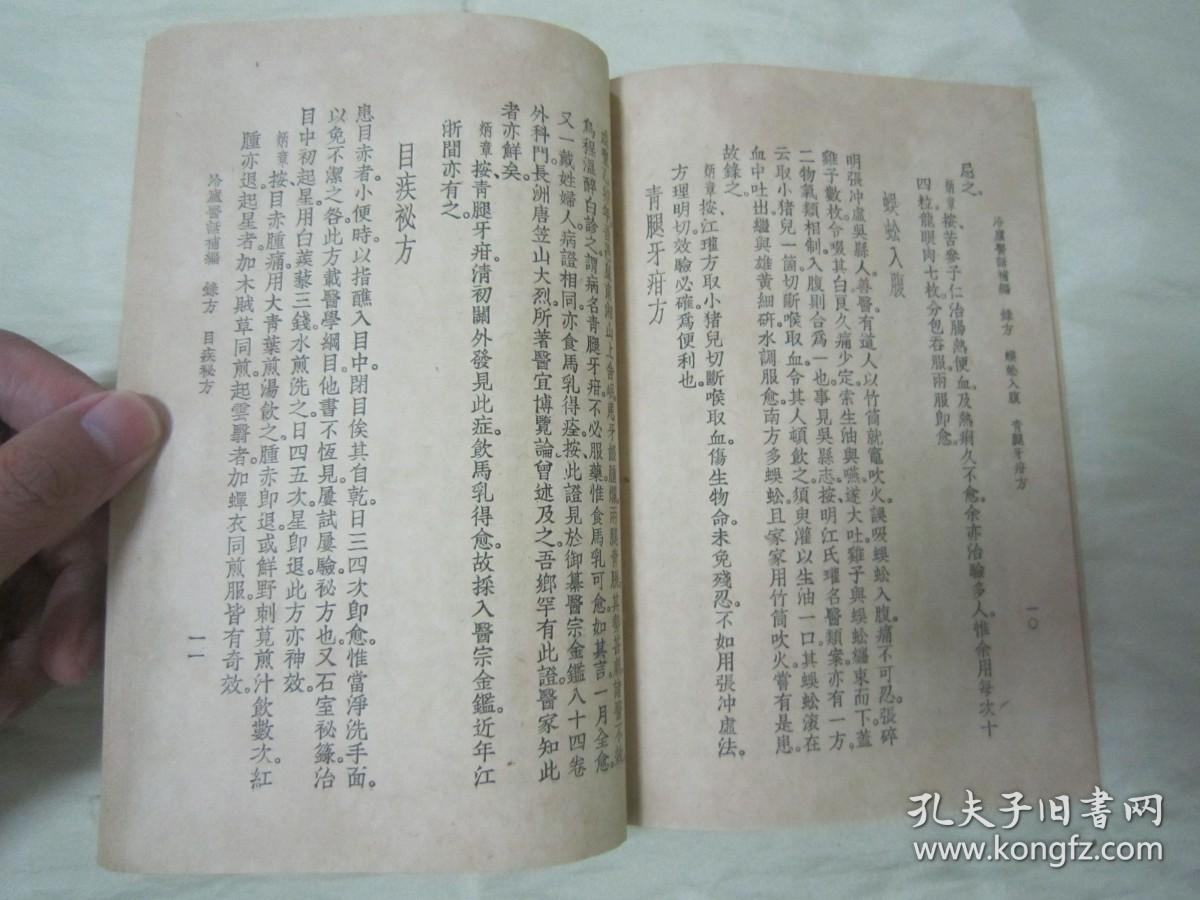 冷廬醫話補編　錄方　蜈蚣入腹　青腿牙疳方
一〇
忌之。
炳章按、苦參子仁治腸熱便血及熱痢久不愈。余亦治驗多人。惟余用每次十
四粒龍眼肉七枚分包吞服。兩服即愈。
蜈蚣入腹
明張冲虛吳縣人。善醫。有道人以竹筒就竈吹火。誤吸蜈蚣入腹。痛不可忍。張碎
雞子數枚。令啜其白。良久痛少定。索生油與嚥。遂大吐。雞子與蜈蚣纏束而下。蓋
二物氣類相制。入腹則合爲一也。事見吳縣志。按、明江氏瓘名醫類案。亦有一方。
云取小猪兒一箇切斷喉取血。令其人頓飲之。須臾灌以生油一口。其蜈蚣滾在
血中吐出。繼與雄黃細研水調服愈。南方多蜈蚣。且家家用竹筒吹火。嘗有是患。
故錄之。
炳章按、江瓘方取小猪兒切斷喉取血。傷生物命。未免殘忍。不如用張冲虛法。
方理明切。效驗必確。爲便利也。
青腿牙疳方
山上舍
見牙齦腫爛。兩腿青腫。其勢甚劇。諸醫不效。
烏程溫醉白診之。謂病名青腿牙疳。不必服藥。惟食馬乳可愈。如其言。一月全愈。
又一戴姓婦人。病證相同。亦食馬乳得痊。按此證見於御纂醫宗金鑑八十四卷
外科門。長洲唐笠山大烈所著醫宜博覽論。曾述及之。吾鄉罕有此證。醫家知此
者亦鮮矣。
炳章按、青腿牙疳。清初關外發見此症。飲馬乳得愈。故採入醫宗金鑑。近年江
浙間亦有之。
目疾祕方
患目赤者。小便時以指醮入目中。閉目俟其自乾。日三四次即愈。惟當淨洗手面。
以免不潔之咎。此方載醫學綱目。他書不恆見。屢試屢驗祕方也。又石室祕籙治
目中初起星。用白蒺藜三錢。水煎洗之。日四五次。星即退。此方亦神效。
炳章按、目赤腫痛。用大青葉煎湯飲之。腫赤即退。或鮮野刺莧煎汁飲數次。紅
腫亦退。起星者。加木賊草同煎。起雲翳者。加蟬衣同煎服。皆有奇效。
冷廬醫話補編　錄方　目疾祕方
一一
孔夫子旧书网
www.kongfz.com